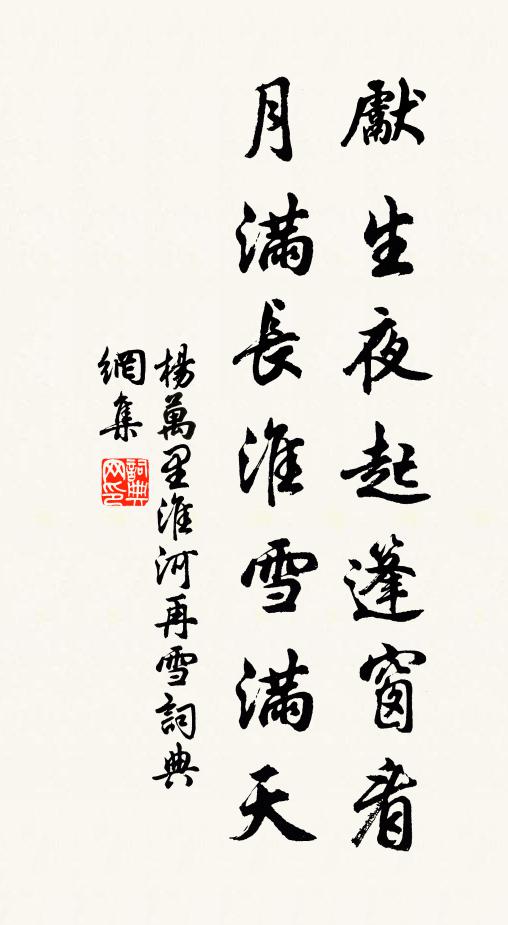 獻生夜起篷窗看
月滿長淮雪滿天
楊萬里淮河再雪詞典
網集
詞典
网印